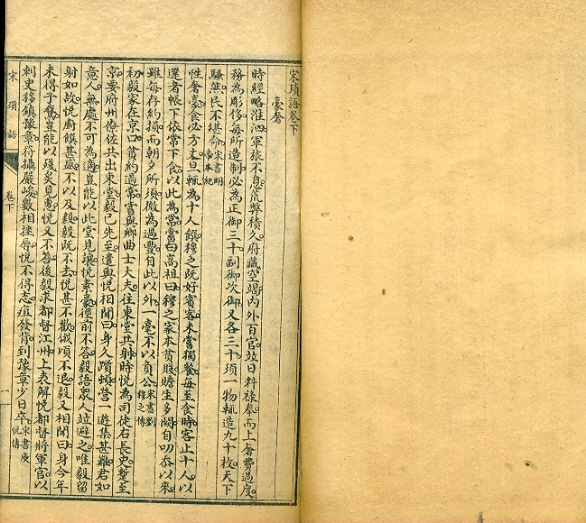 宋瑣語卷下
豪奢
時經略淮泗軍旅不息荒弊積久府藏空竭內外百官並日料祿奉而上奢費過度
務為彫侈每所造制必為正御三十副御次御又各三十須一物輒造九十枚天下
騷然民不堪命宋書明帝本紀
性奢豪食必方丈旦輒為十人饌穆之既好賓客未嘗獨餐每至食時客止十人以
還者帳下依常下食以此為常嘗白高祖曰穆之家本貧賤贍生多闕自叨忝以來
雖每存約損而朝夕所須微為過豐自此以外一毫不以負公宋書劉穆之傳
初毅家在京口貧約過常嘗與鄉曲士大夫往東堂共射時悅為司徒右長史蹔至
京要府州僚佐共出東堂毅已先至遣與悅相聞曰身久躓頓營一遊集甚難君如
意人無處不可為適豈能以此堂見讓悅素豪徑前不答毅語眾人並避之唯毅留
射如故悅廚饌甚盛不以及毅毅既不去悅甚不歡俄頃亦退毅又相聞曰身今年
未得子鵞豈能以殘炙見惠悅又不答後毅求都督江州上表解悅都督將軍官以
刺史移鎮豫章符攝嚴峻數相挫辱悅不得志疽發背到豫章少日卒宋書庾悅傳
宋瑣語
卷下
一